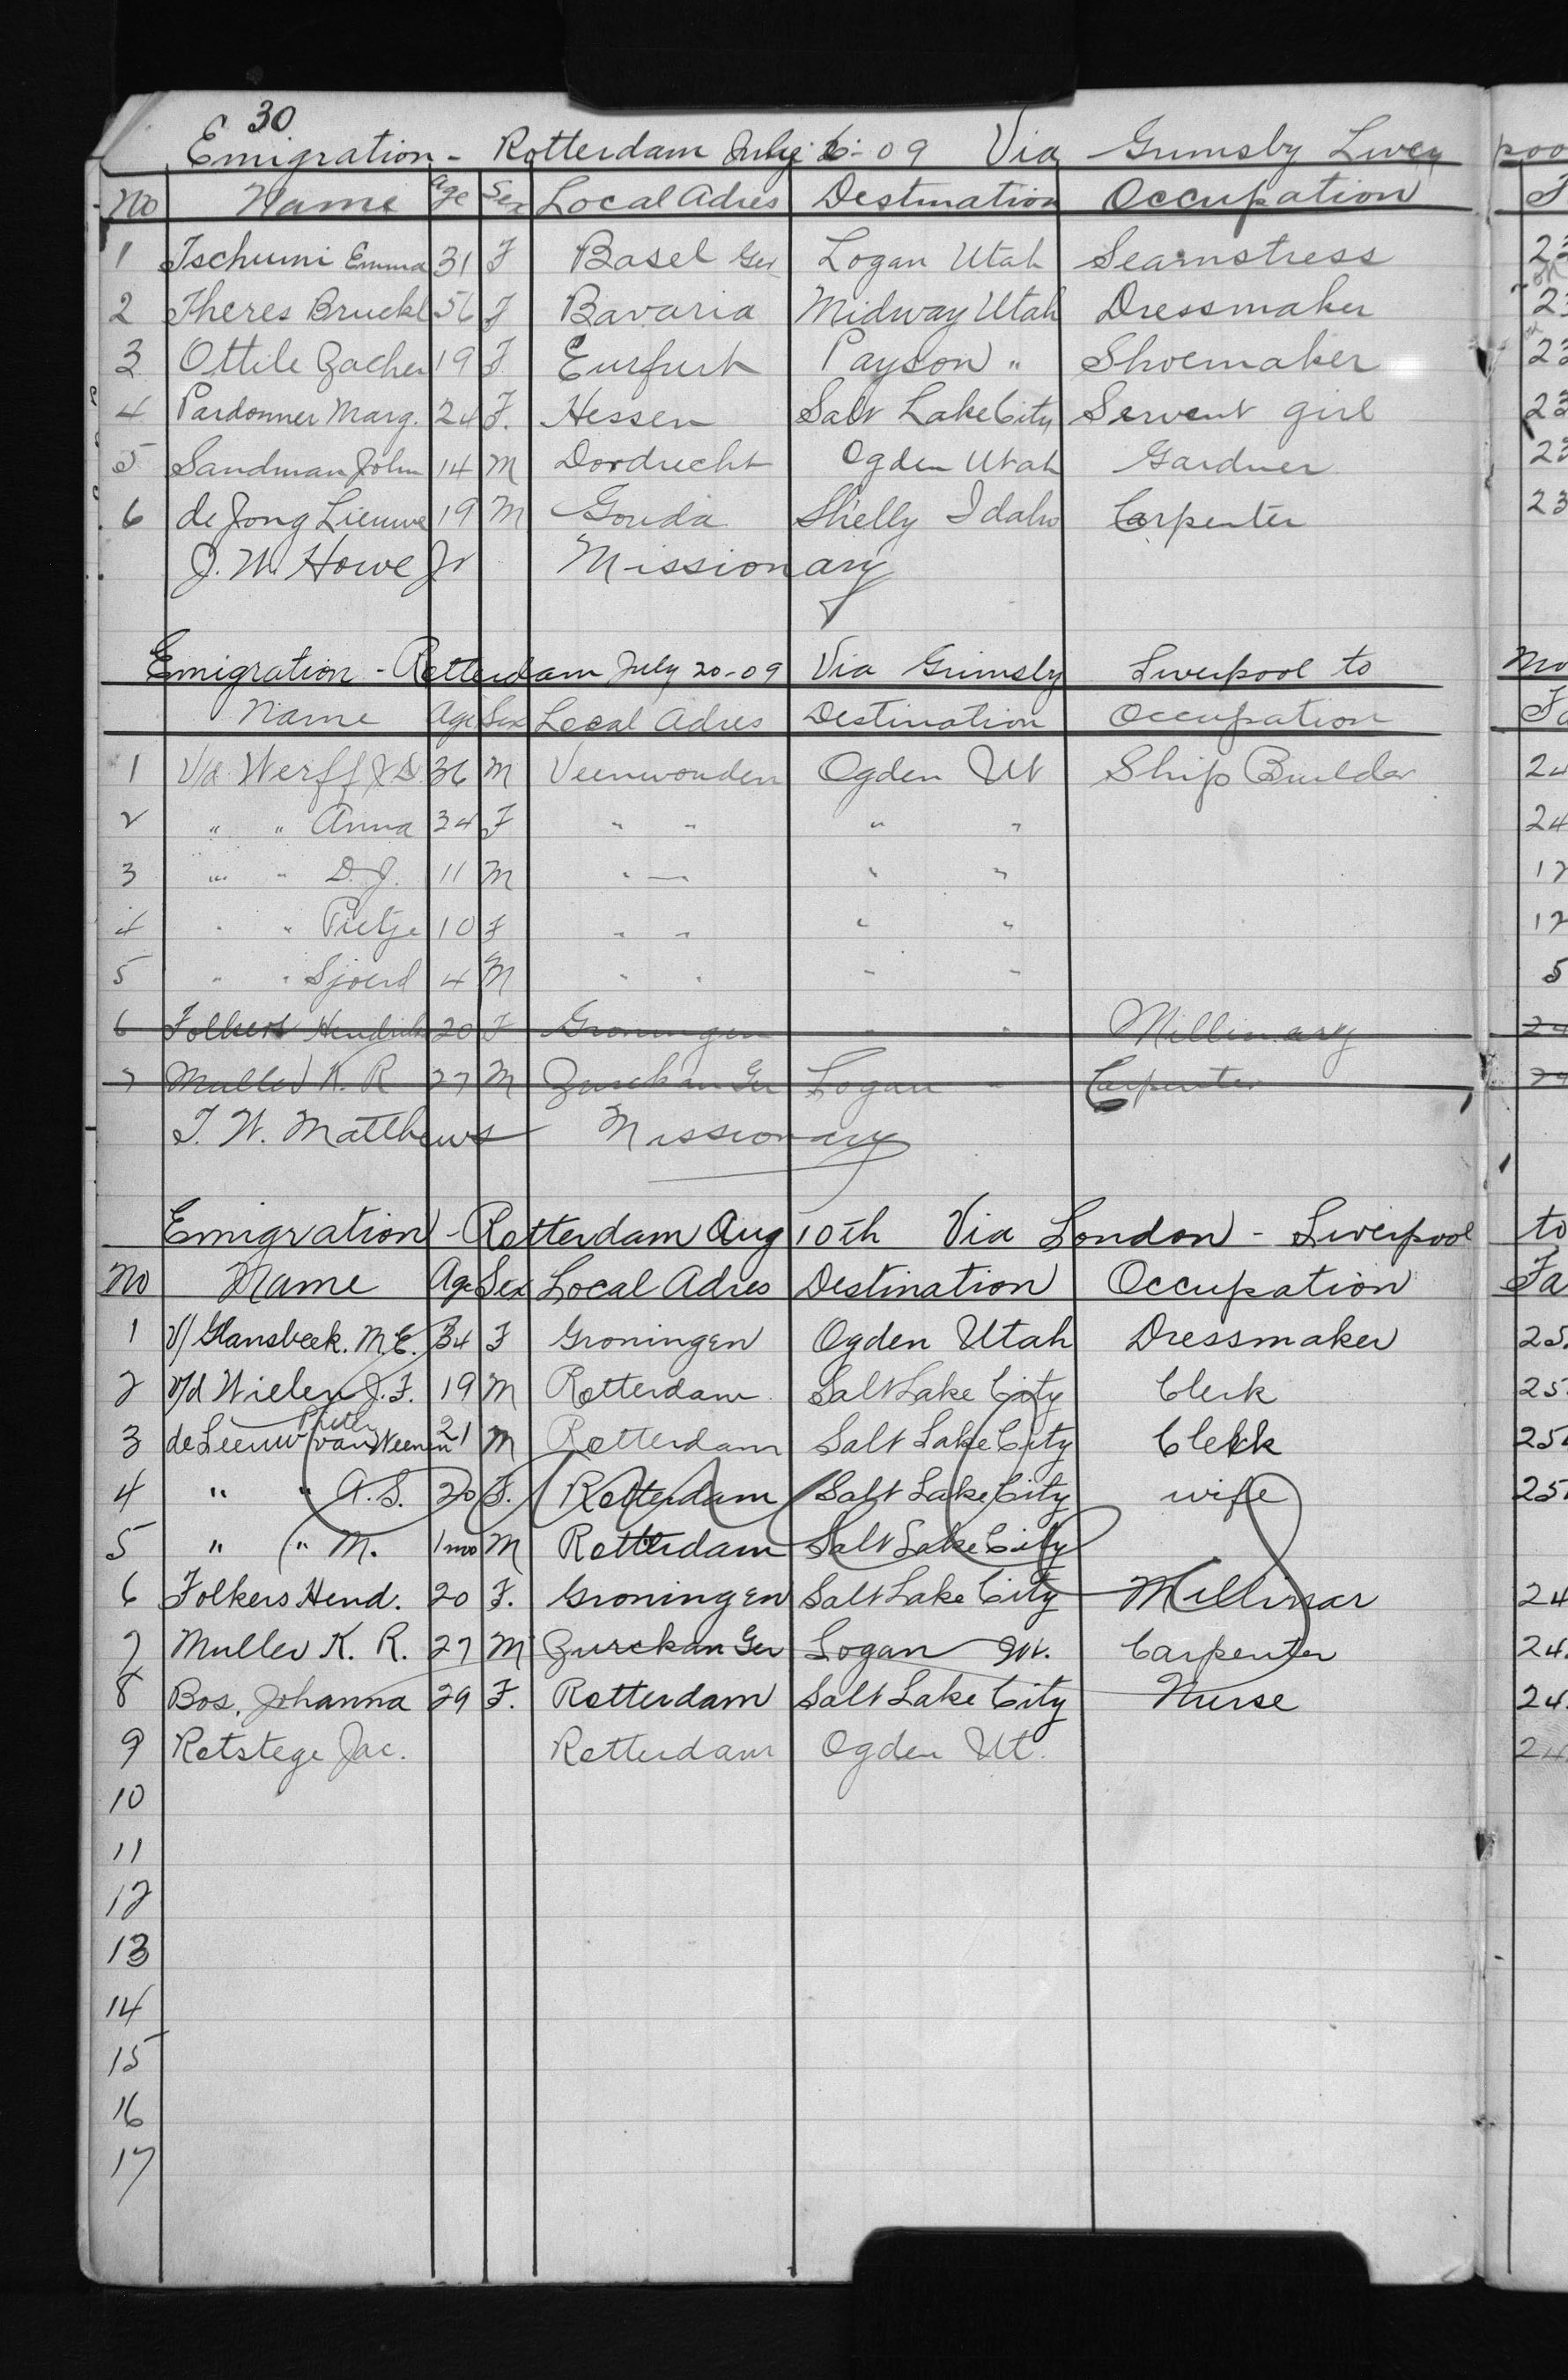 30
Emigration - Rotterdam July 6 - 09 Via Grimsby Liver poo
No Name Age Sex Local Adres Destination Occupation
1 Tschumi Emma 31 F Basel Ger Logan Utah Seamstress 23
2 Theres Bruckl 56 F Bavaria Midway Utah Dressmaker 23
3 Ottile Zacher 19 F Eurfurt Payson " Shoemaker 23
4 Pardonner Marg. 24 F. Hessen Salt Lake City Servent girl 23
5 Sandman John 14 M Dordrecht Ogden Utah Gardner 23
6 de Jong Lieuwe 19 M Gouda Shelly Idaho Carpenter 23
J. W. Howe Jr Missionary
Emigration - Rotterdam July 20-09 Via Grimsby Liverpool to Mo
Name Age Sex Local Adres Destination Occupation Fa
1 V/d Werff J D 36 M Veenwouden Ogden Ut Ship Builder 24
2 " " Anna 34 F " " " " 24
3 " " D. J. 11 M " — " " 12
4 " " Pietje 10 F " " " " 12
5 " " Sjoerd 4 M " " " " 5
6 Folkers Hendrik 20 F Groningen " " Millinary 24
7 Muller K. R 27 M Zurckan Ger Logan " Carpenter
T. W. Matthews Missionary
Emigration - Rotterdam Aug 10th Via London - Liverpool to
No Name Age Sex Local Adres Destination Occupation Fa
1 V/ Glansbeek. M.E. 34 F Groningen Ogden Utah Dressmaker 25.
2 v/d Wielen J. F. 19 M Rotterdam Salt Lake City Clerk 25
3 de Leeuw Pieter van Weenen 21 M Rotterdam Salt Lake City Clerk 25
4 " " A. S. 20 F. Rotterdam Salt Lake City wife 25
5 " " M. 1 mo M Rotterdam Salt Lake City
6 Folkers Hend. 20 F. Groningen Salt Lake City Millinar 24
7 Muller K. R. 27 M Zurckan Ger Logan Ut. Carpenter 24.
8 Bos. Johanna 29 F. Rotterdam Salt Lake City Nurse 24.
9 Rotstege Jac. Rotterdam Ogden Ut. 24
10
11
12
13
14
15
16
17